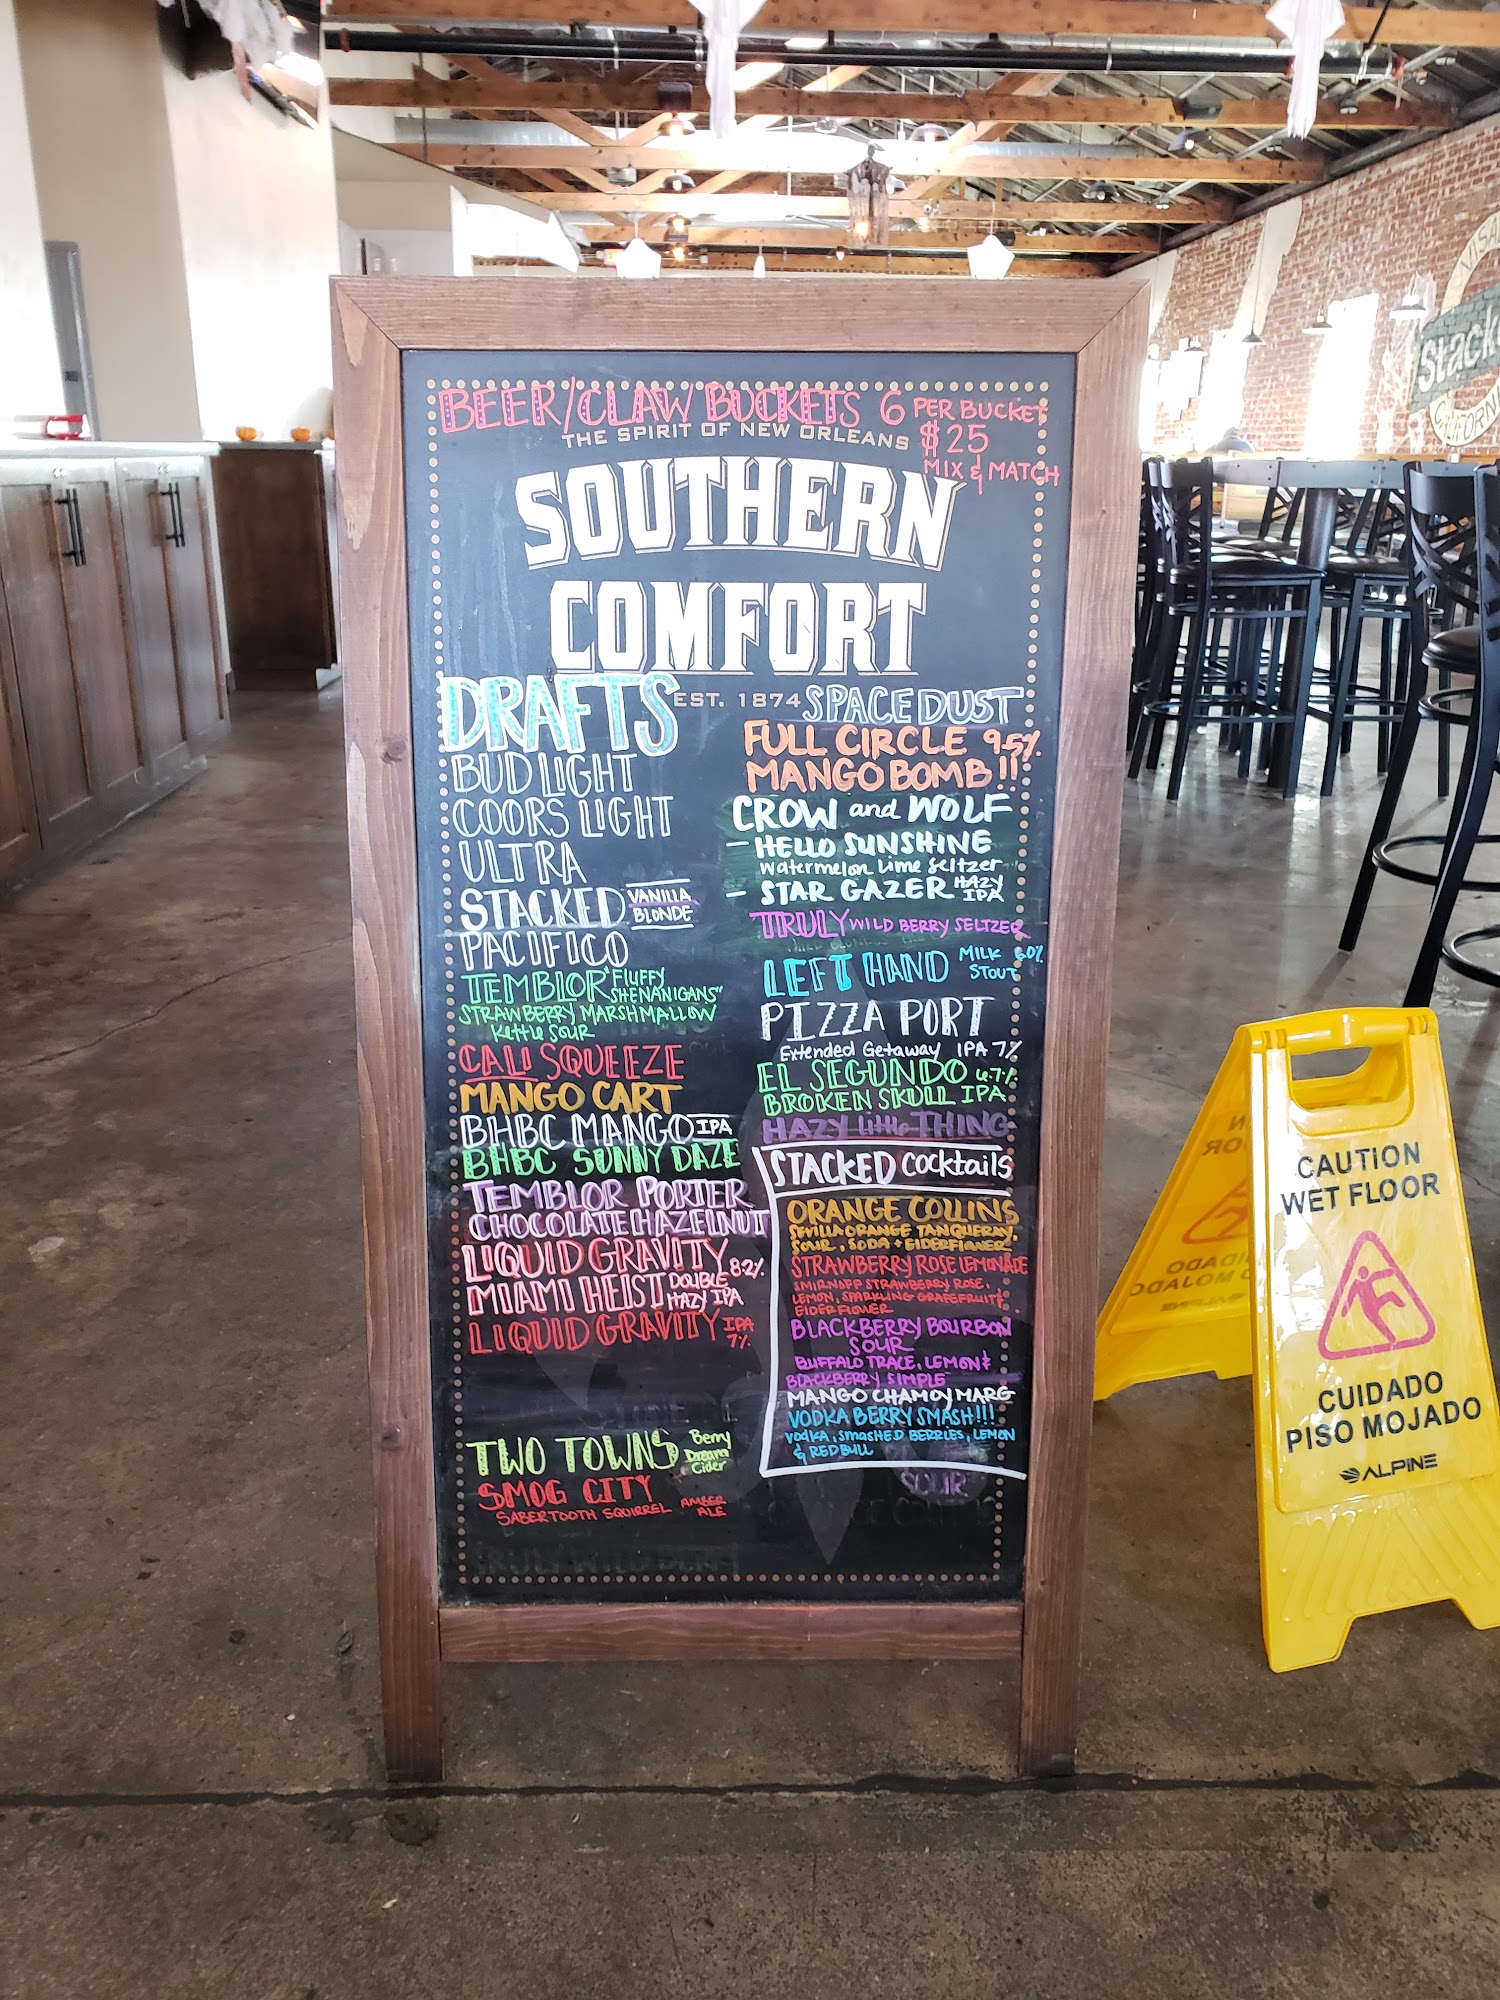 BEER/CLAW BUCKETS 6 PER BUCKET
$25
MIX & MATCH
THE SPIRIT OF NEW ORLEANS
SOUTHERN
COMFORT
EST. 1874
DRAFTS
BUD LIGHT
COORS LIGHT
ULTRA
STACKED VANILLA BLONDE
PACIFICO
TEMBLOR "FLUFFY SHENANIGANS"
STRAWBERRY MARSHMALLOW
Kettle SOUR
CALI SQUEEZE
MANGO CART
BHBC MANGO IPA
BHBC SUNNY DAZE
TEMBLOR PORTER
CHOCOLATE HAZELNUT
LIQUID GRAVITY 8.2%
MIAMI HEIST DOUBLE HAZY IPA
LIQUID GRAVITY IPA 7%
TWO TOWNS Berry Dream Cider
SMOG CITY
SABERTOOTH SQUIRREL AMBER ALE
SPACE DUST
FULL CIRCLE 9.5%
MANGO BOMB!!
CROW and WOLF
- HELLO SUNSHINE
watermelon Lime Seltzer
- STAR GAZER HAZY IPA
TRULY WILD BERRY SELTZER
LEFT HAND MILK STOUT 6.0%
PIZZA PORT
Extended Getaway IPA 7%
EL SEGUNDO 6.7%
BROKEN SKULL IPA
HAZY little THING
STACKED Cocktails
ORANGE COLLINS
SEVILLA ORANGE TANQUERAY,
SOUR, SODA + ElDERFlOWER
STRAWBERRY ROSE LEMONADE
SMIRNOFF STRAWBERRY ROSE,
LEMON, SPARKLING GRAPEFRUIT &
ElDERFLOWER
BLACKBERRY BOURBON
SOUR
BUFFALO TRACE, LEMON &
BLACKBERRY SIMPLE
MANGO CHAMOY MARG
VODKA BERRY SMASH!!!
VODKA, SMASHED BERRIES, LEMON
& REDBULL
SOUR
Stack
CALIFORNI
CAUTION
WET FLOOR
CUIDADO
PISO MOJADO
ALPINE